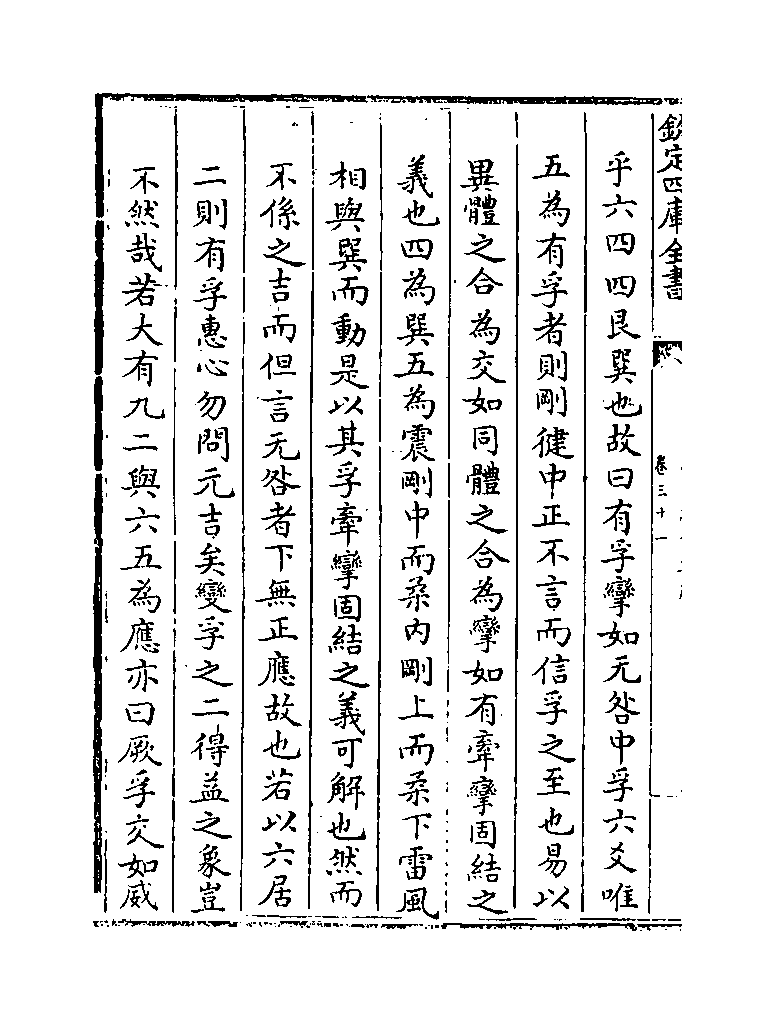 欽定四庫全書
卷三十一
乎六四四艮巽也故曰有孚攣如无咎中孚六爻唯
五為有孚者則剛健中正不言而信孚之至也易以
異體之合為交如同體之合為攣如有牽攣固結之
義也四為巽五為震剛中而柔内剛上而柔下雷風
相與巽而動是以其孚牽攣固結之義可解也然而
不係之吉而但言无咎者下無正應故也若以六居
二則有孚惠心勿問元吉矣變孚之二得益之象豈
不然哉若大有九二與六五為應亦曰厥孚交如威